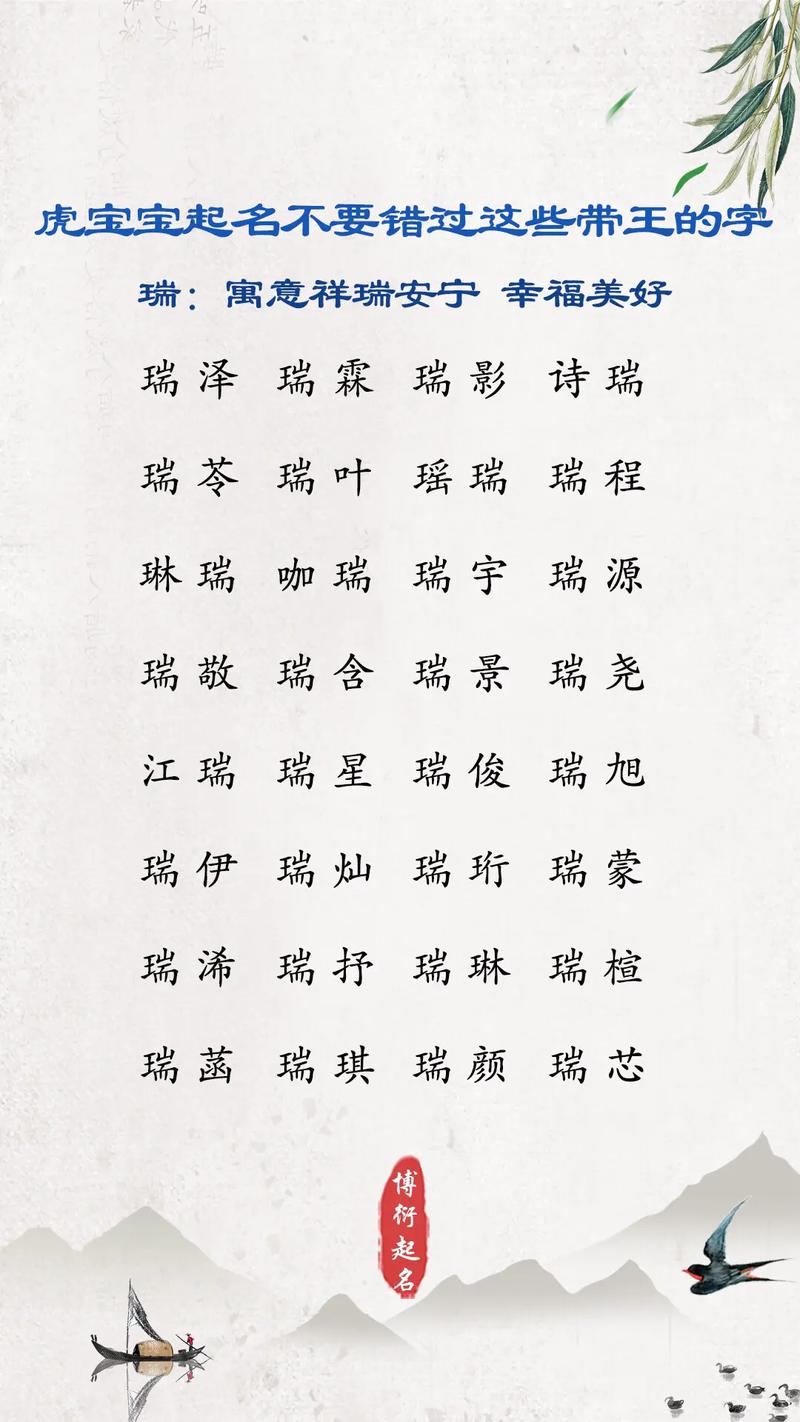 虎宝宝起名不要错过这些带王的字
瑞：寓意祥瑞安宁 幸福美好
瑞泽 瑞霖 瑞影 诗瑞
瑞苓 瑞叶 瑶瑞 瑞程
琳瑞 咖瑞 瑞宇 瑞源
瑞敬 瑞含 瑞景 瑞尧
江瑞 瑞星 瑞俊 瑞旭
瑞伊 瑞灿 瑞珩 瑞蒙
瑞浠 瑞抒 瑞琳 瑞楦
瑞菡 瑞琪 瑞颜 瑞芯
博衍起名